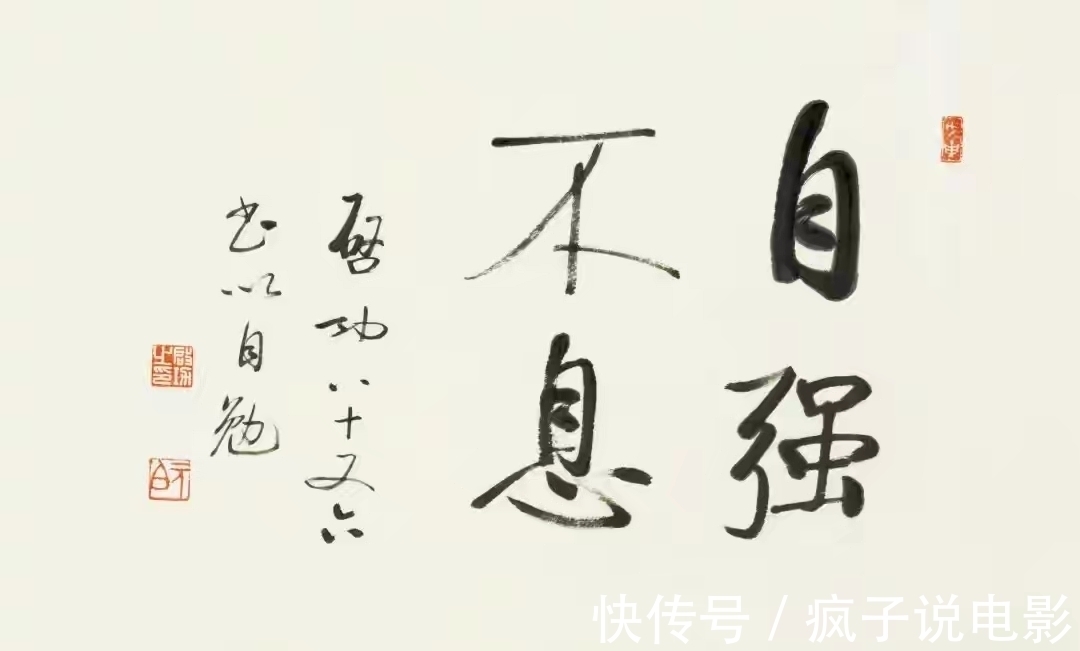 自强
不息
启功八十又六
书以自勉
快传号 / 疯子说电影